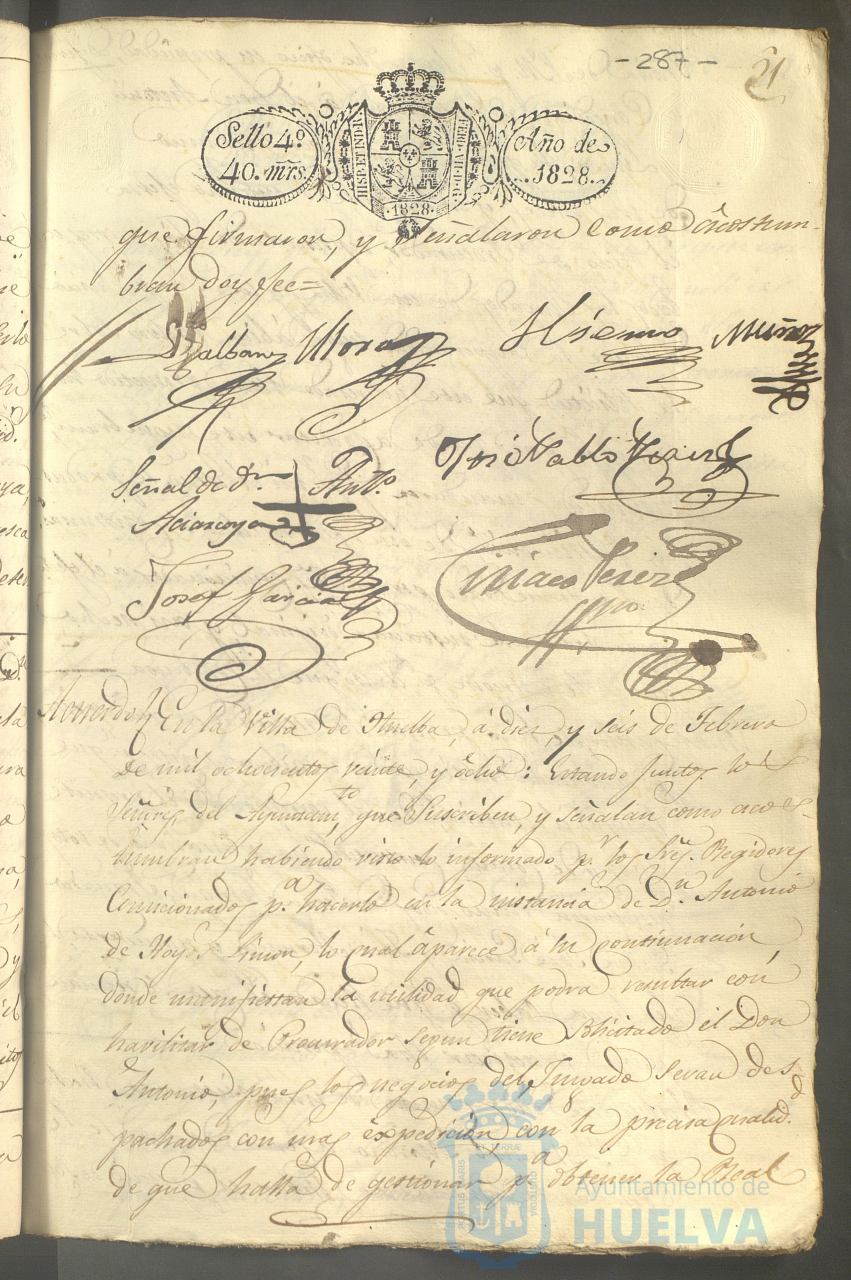 -287-
21
Sello 4º
40. mrs.
HISP. ET IND. R
1828
FERD. VII. D. G.
Año de
1828.
que firmaron, y señalaron como acostum-
bran doy fee=
Mora Hierro Muñoz
Señal de Dn Anto.
José Pablo Perez
Josef Garcia
Ciriaco Perez
Acuerdo En la Villa de Huelba, á diez, y seis de Febrero
de mil ochocientos veinte, y ocho: Estando juntos los
Señores del Ayuntamto. que suscriben, y señalan como acos-
tumbran habiendo visto lo informado pr. los Srs. Regidores
Comicionados pa. hacerlo en la instancia de Dn. Antonio
de Hoyos Limon, lo cual aparece á su continuación,
donde manifiestan la utilidad que podra resultar con
havilitar de Procurador segun tiene solicitado el Don
Antonio, pues los negocios del Juzgado seran des-
pachados con mas expedición con la precisa qualidd.
de que halla de gestionar pa. obtener la Real
Ayuntamiento de
HUELVA